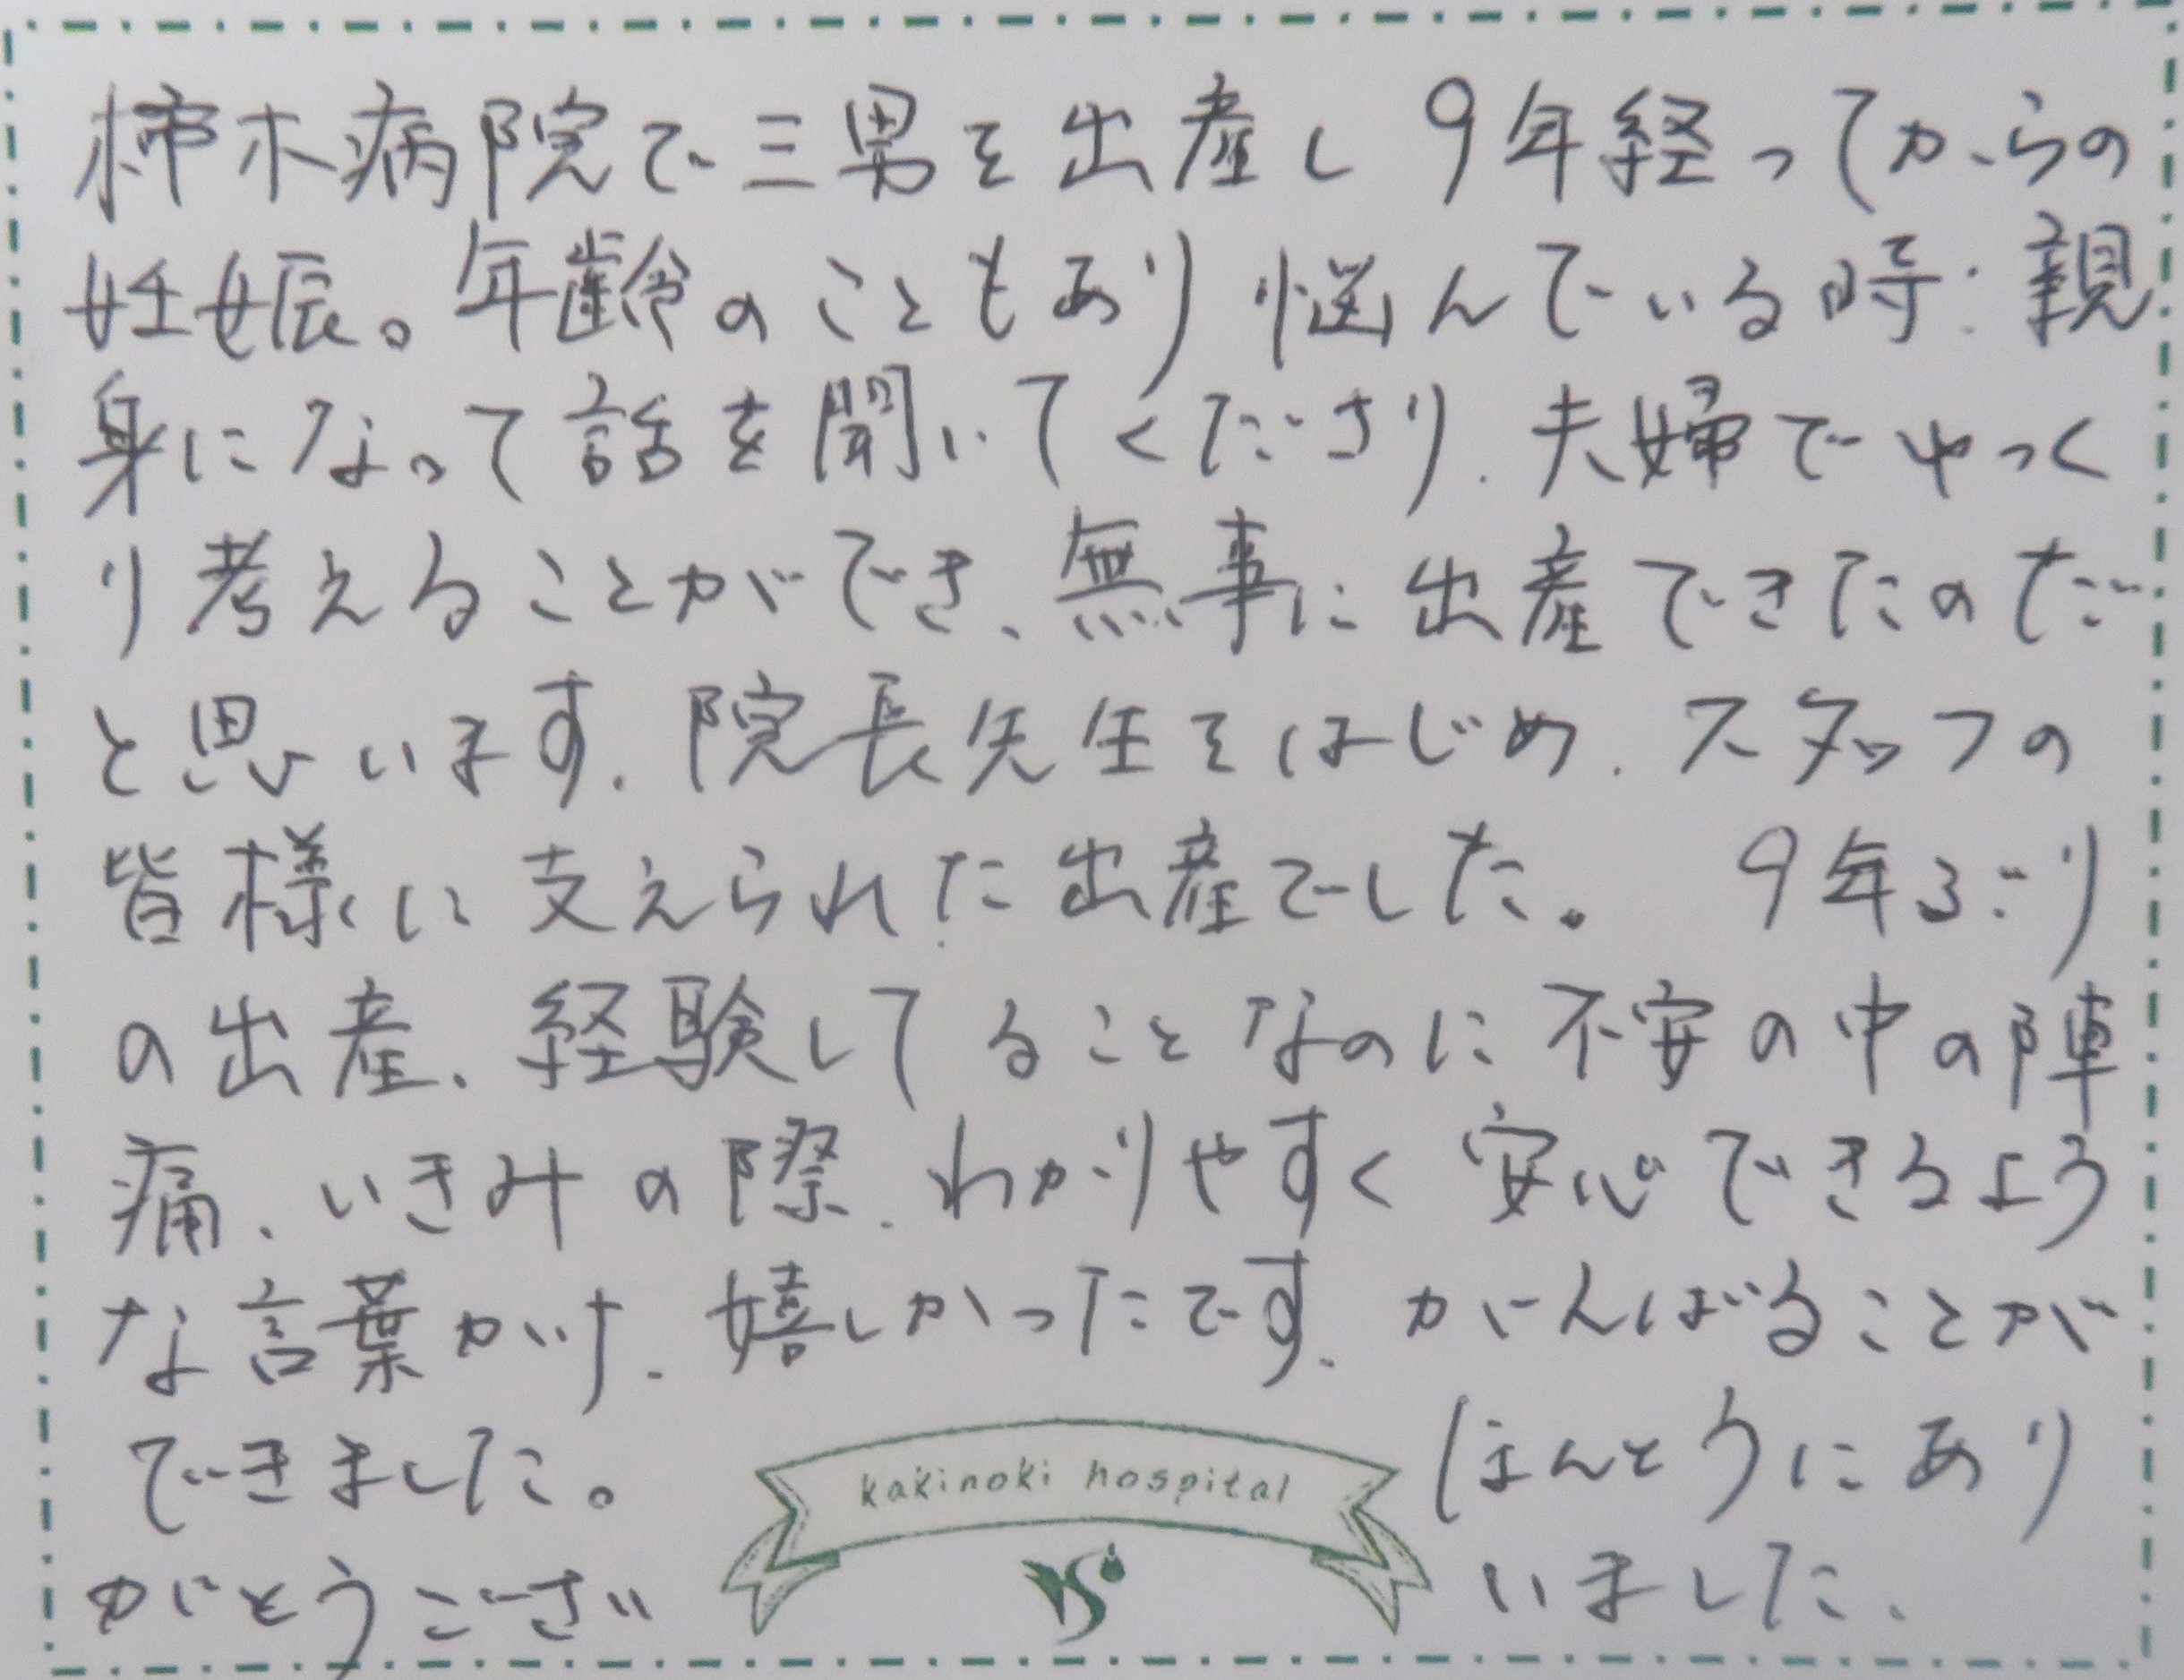 柿木病院で三男を出産し 9年経ってからの
妊娠。年齢のこともあり悩んでいる時、親
身になって話を聞いてくださり、夫婦でゆっく
り考えることができ、無事に出産できたのだ
と思います。院長先生をはじめ、スタッフの
皆様に支えられた出産でした。 9年ぶり
の出産、経験してることなのに不安の中の陣
痛、いきみの際、わかりやすく安心できるよう
な言葉がけ、嬉しかったです。がんばることが
できました。 ほんとうにあり
kakinoki hospital
がとうござい いました。